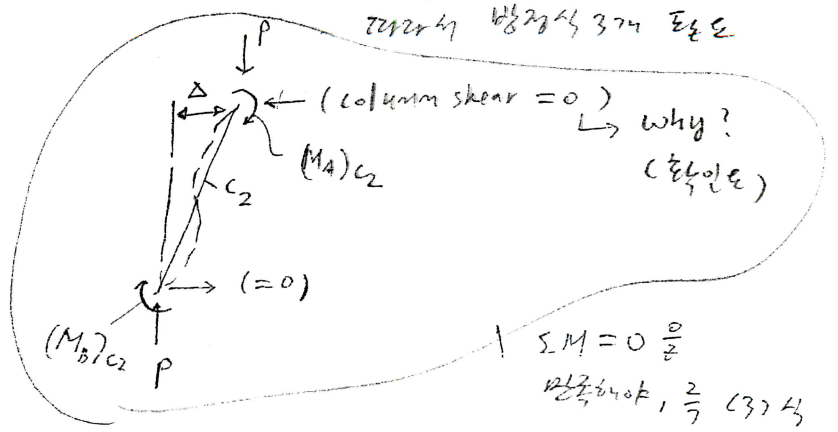 따라서 방정식 3개 필요
P
Δ
(column shear = 0)
↳ why?
(확인요)
(M_A)_{C2}
C_2
(=0)
(M_B)_{C2}
P
ΣM = 0 을
만족해야, 즉 (3)식